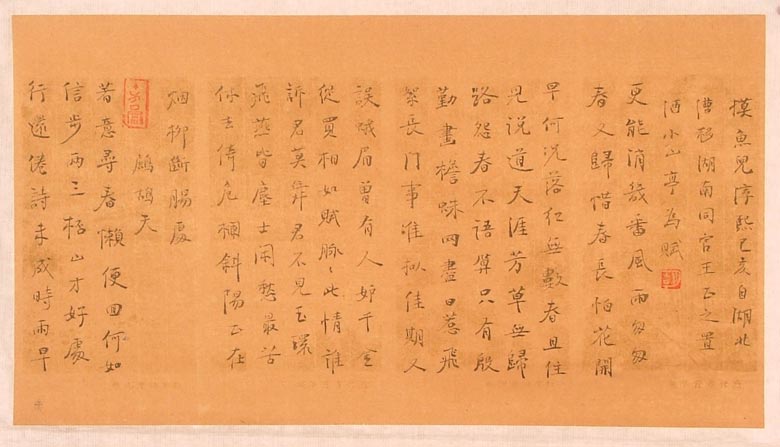 摸魚兒淳熙己亥自湖北
漕移湖南同官王正之置
酒小山亭為賦
更能消幾番風雨匆匆
春又歸惜春長怕花開
早何況落紅無數春且住
見說道天涯芳草無歸
路怨春不語算只有殷
勤畫檐蛛网盡日惹飛
絮長門事准拟佳期又
誤蛾眉曾有人妒千金
從買相如賦脉〻此情誰
訴君莫舞君不見玉環
飛燕皆塵土閑愁最苦
休去倚危欄斜陽正在
烟柳斷腸處
鷓鴣天
著意尋春懶便回何如
信步兩三杯山才好處
行還倦詩未成時雨早